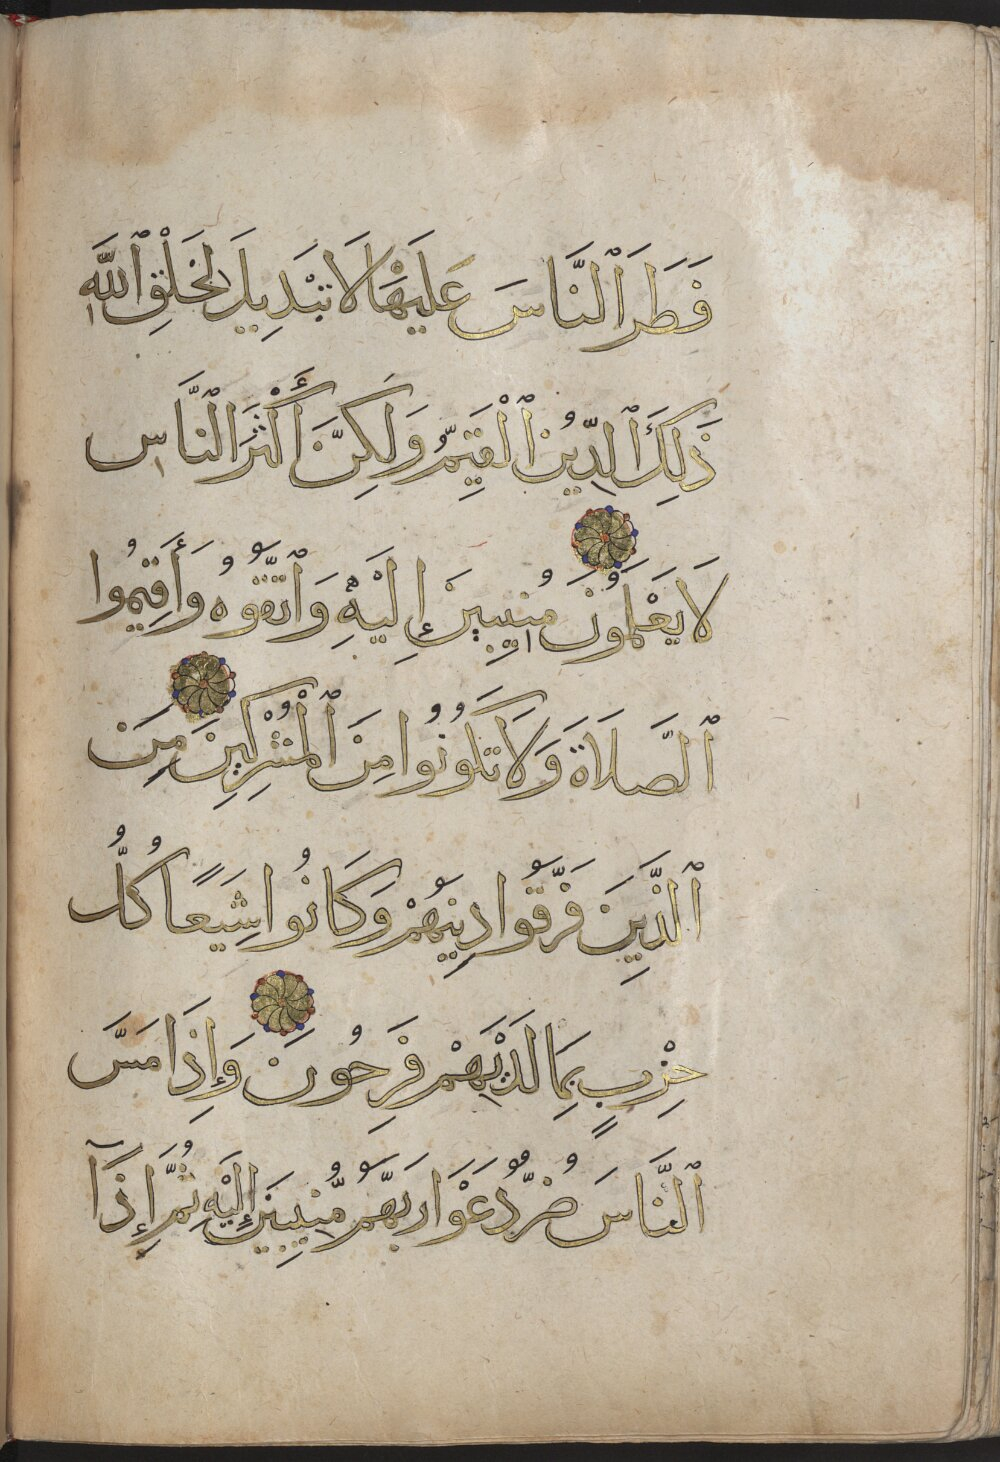 فَطَرَ ٱلنَّاسَ عَلَيْهَا لَا تَبْدِيلَ لِخَلْقِ ٱللَّهِ
ذَلِكَ ٱلدِّينُ ٱلْقَيِّمُ وَلَكِنَّ أَكْثَرَ ٱلنَّاسِ
لَا يَعْلَمُونَ مُنِيبِينَ إِلَيْهِ وَٱتَّقُوهُ وَأَقِيمُوا
ٱلصَّلَاةَ وَلَا تَكُونُوا مِنَ ٱلْمُشْرِكِينَ مِنَ
ٱلَّذِينَ فَرَّقُوا دِينَهُمْ وَكَانُوا شِيَعًا كُلُّ
حِزْبٍ بِمَا لَدَيْهِمْ فَرِحُونَ وَإِذَا مَسَّ
ٱلنَّاسَ ضُرٌّ دَعَوْا رَبَّهُمْ مُنِيبِينَ إِلَيْهِ ثُمَّ إِذَآ